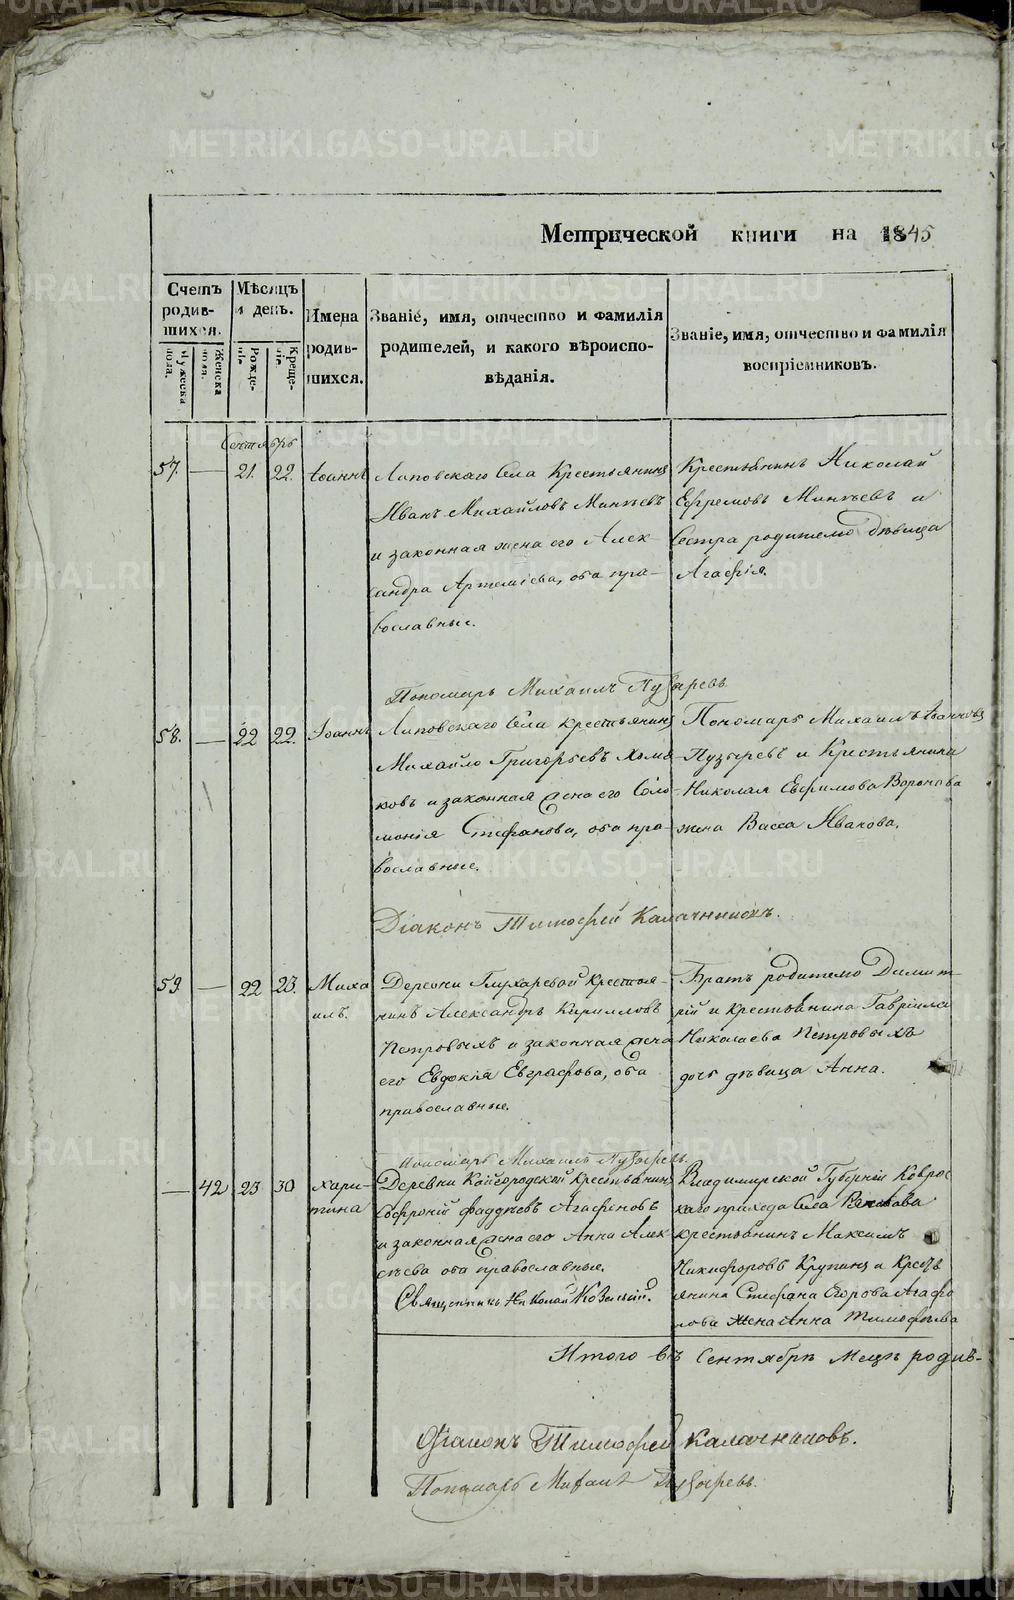 METRIKI.GASO-URAL.RU
Метрической книги на 1845
Счетъ родившихся.
Мѣсяцъ и день.
Имена родившихся.
Званіе, имя, отчество и фамилія родителей, и какого вѣроисповѣданія.
Званіе, имя, отчество и фамилія воспріемниковъ.
Мужеска пола.
Женска пола.
Рожденіе
Крещеніе
Сентябрь
57. — 21. 22. Іоаннъ
Липовскаго Села Крестьянинъ
Иванъ Михайловъ Минѣевъ
и законная жена его Алек-
сандра Артеміева, оба пра-
вославные.
Крестьянинъ Николай
Ефремовъ Минѣевъ и
Сестра родителю дѣвица
Агафія.
Пономарь Михаилъ Пузыревъ
58. — 22 22. Іоаннъ
Липовскаго Села крестьянинъ
Михайло Григорьевъ Хомя-
ковъ и законная жена его Соло-
монія Стефанова, оба пра-
вославные.
Пономарь Михаилъ Іоанновъ
Пузыревъ и Крестьянина
Николая Евфимова Воронова
жена Васса Иванова.
Діаконъ Тимофей Калачниковъ.
59. — 22 23. Миха
илъ.
Деревни Глухаревой крестья-
нинъ Александръ Кирилловъ
Петровыхъ и законная жена
его Евдокія Евграфова, оба
православные.
Братъ родителю Димит-
рій и крестьянина Гавріила
Николаева Петровыхъ
дочь дѣвица Анна.
Пономарь Михаилъ Пузыревъ.
— 42 23 30 Хари-
тина
Деревни Кайгородской Крестьянинъ
Софроній Фаддѣевъ Агафоновъ
и законная жена его Анна Алек-
сѣева оба православные.
Священникъ Николай Козельскій.
Владимірской Губерніи Коврос
каго прихода Села
крестьянинъ Максимъ
Никифоровъ Крупинъ и Кресть
янина Стефана Егорова Агафо
нова жена Анна Тимофѣева
Итого въ Сентябрѣ Мцѣ родив-
Діаконъ Тимофей Калачниковъ.
Пономарь Михаилъ Пузыревъ.